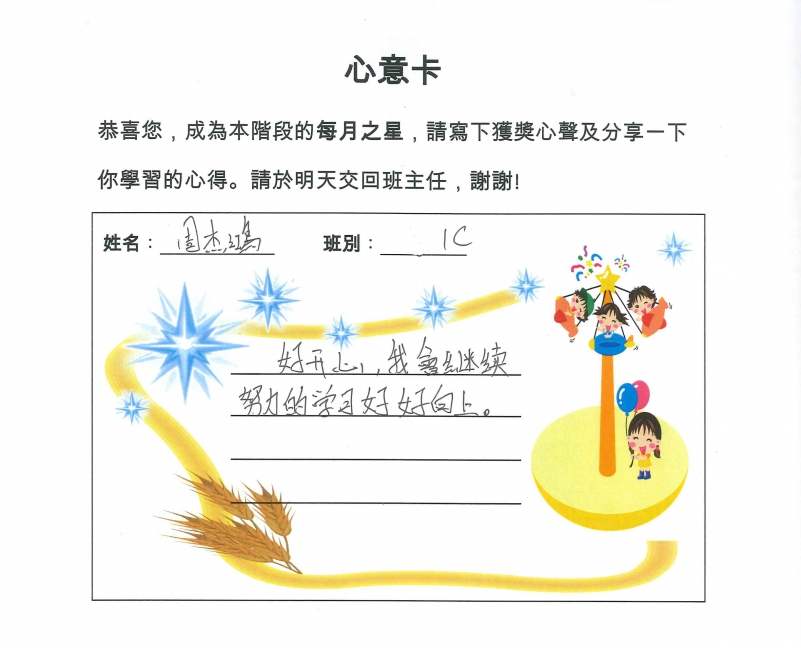 心意卡
恭喜您，成為本階段的每月之星，請寫下獲獎心聲及分享一下
你學習的心得。請於明天交回班主任，謝謝!
姓名：周杰鴻 班別：1C
好开心，我會继续
努力的学习好好向上。